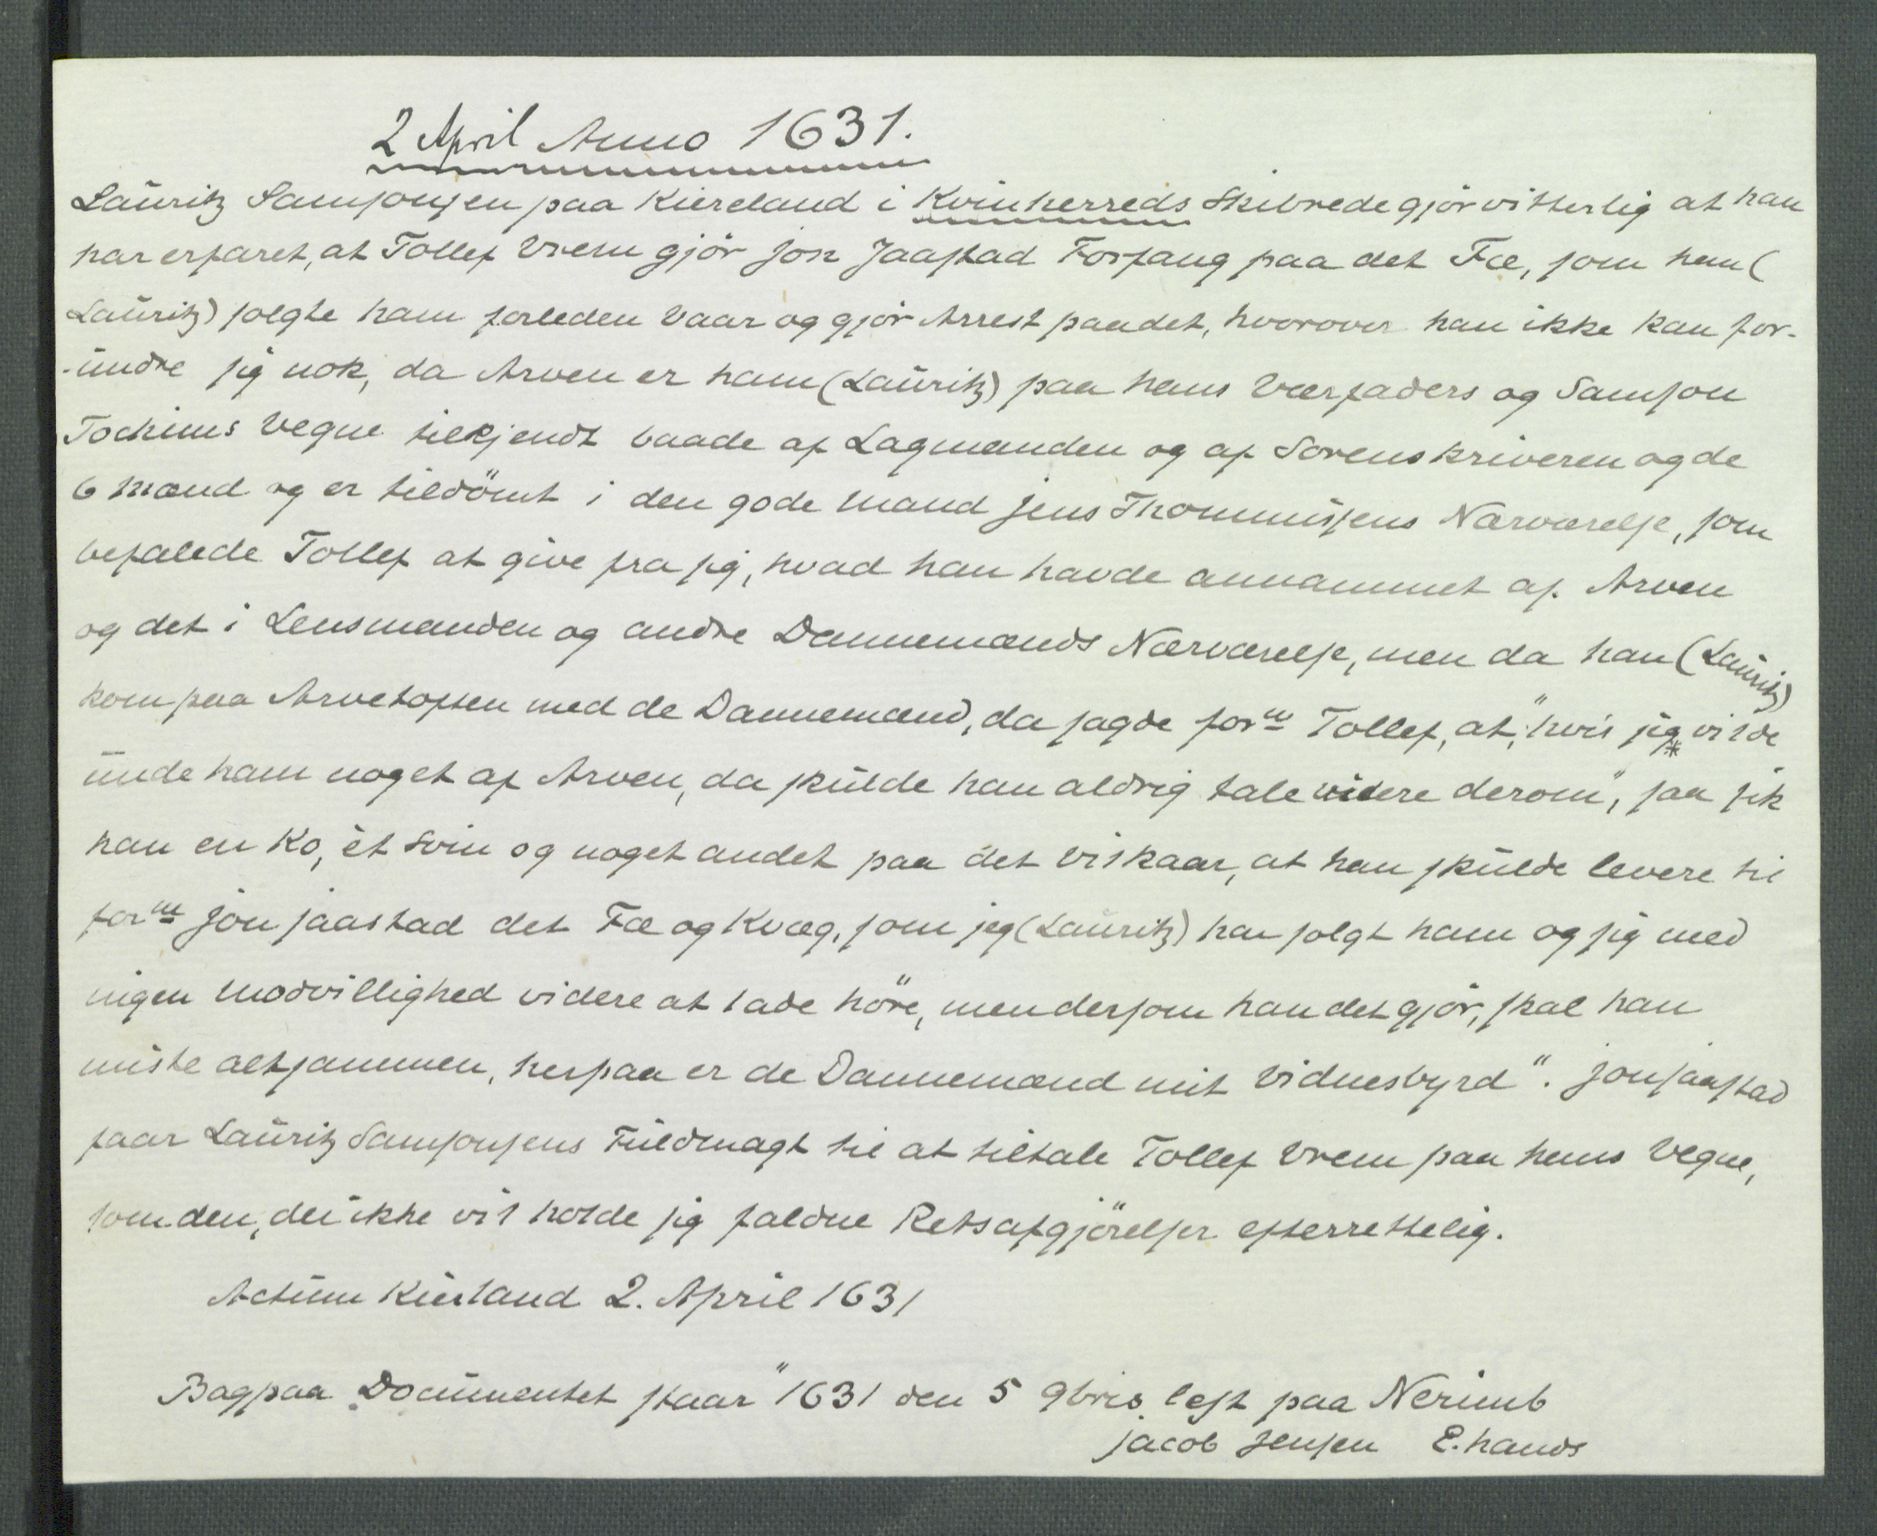 2 April Anno 1631.
Lauritz Samsonsen paa Kiereland i Kvinherreds Skibrede gjör vitterlig at han
har erfaret, at Tollef Vrem gjör Jon Jaastad Forfang paa det Fæ, som han (
Lauritz) solgte ham forleden Vaar og gjör Arrest paa det, hvorover han ikke kan for-
-undre sig nok, da Arven er ham (Lauritz) paa hans Værfaders og Samson
Tochims Vegne tilkjendt baade af Lagmanden og af Sorenskriveren og de
6 Mænd og er tildömt i den gode Mand Jens Thommisens Nærværelse, som
befalede Tollef at give fra sig, hvad han havde annammet af Arven
og det i Lensmanden og andre Dannemænds Nærværelse, men da han (Lauritz)
kom paa Arvetoften med de Dannemænd, da sagde for<u>m</u> Tollef, at, "hvis jeg* vilde
unde ham noget af Arven, da skulde han aldrig tale videre derom", saa fik
han en Ko, et Svin og noget andet paa det Vilkaar, at han skulde levere til
for<u>m</u> Jon Jaastad det Fæ og Kvæg, som jeg (Lauritz) har solgt ham og sig med
ingen Modvillighed videre at lade höre, men dersom han det gjör, skal han
miste altsammen, herpaa er de Dannemænd mit Vidnesbyrd". Jon Jaastad
faar Lauritz Samsonsens Fuldmagt til at tiltale Tollef Vrem paa hans Vegne,
som den, der ikke vil holde sig faldne Retsafgjörelser efterrettelig.
Actum Kierland 2. April 1631
Bagpaa Documentet staar "1631 den 5 9bris lest paa Nerimb
Jacob Jensen E. hands